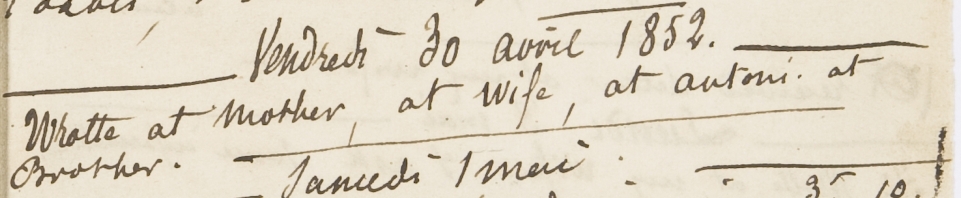 Vendredi 30 avril 1852.
Wrotte at Mother, at Wife, at antoni. at
Brother.
Samedi 1 mai